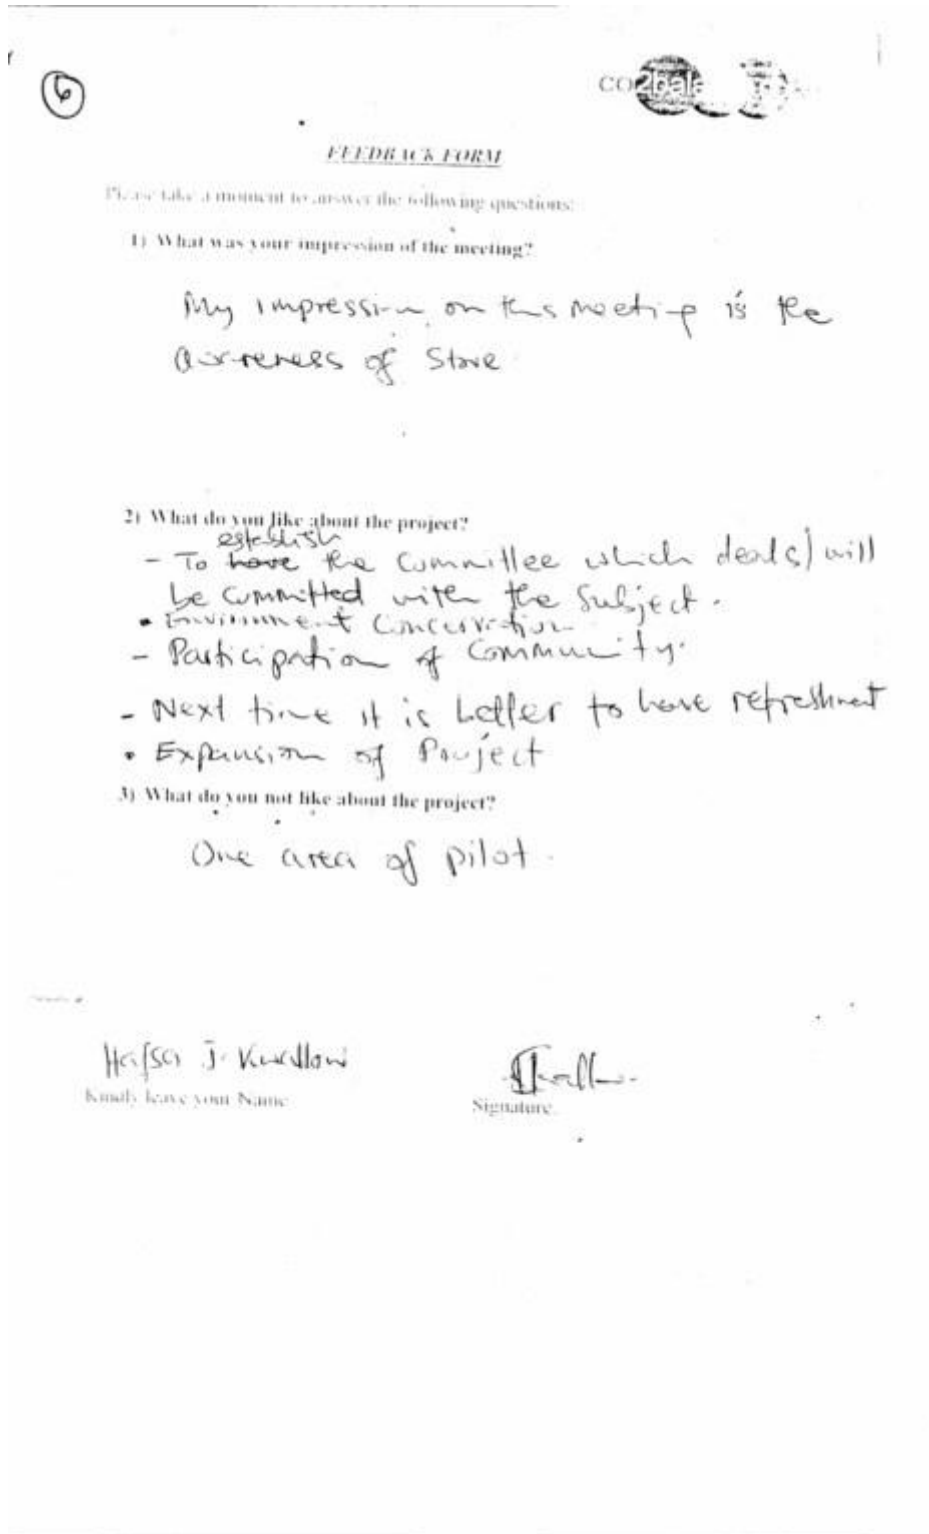 6
CO2bala
FEEDBACK FORM
Please take a moment to answer the following questions:
1) What was your impression of the meeting?
My impression on this meeting is the
awareness of Stove
2) What do you like about the project?
establish
- To have the Committee which deals) will
be committed with the Subject.
• Environment Concervation
- Participation of Community.
- Next time it is better to have refreshment
• Expansion of Project
3) What do you not like about the project?
One area of pilot.
Hafsa J.
Kindly leave your Name
Signature.